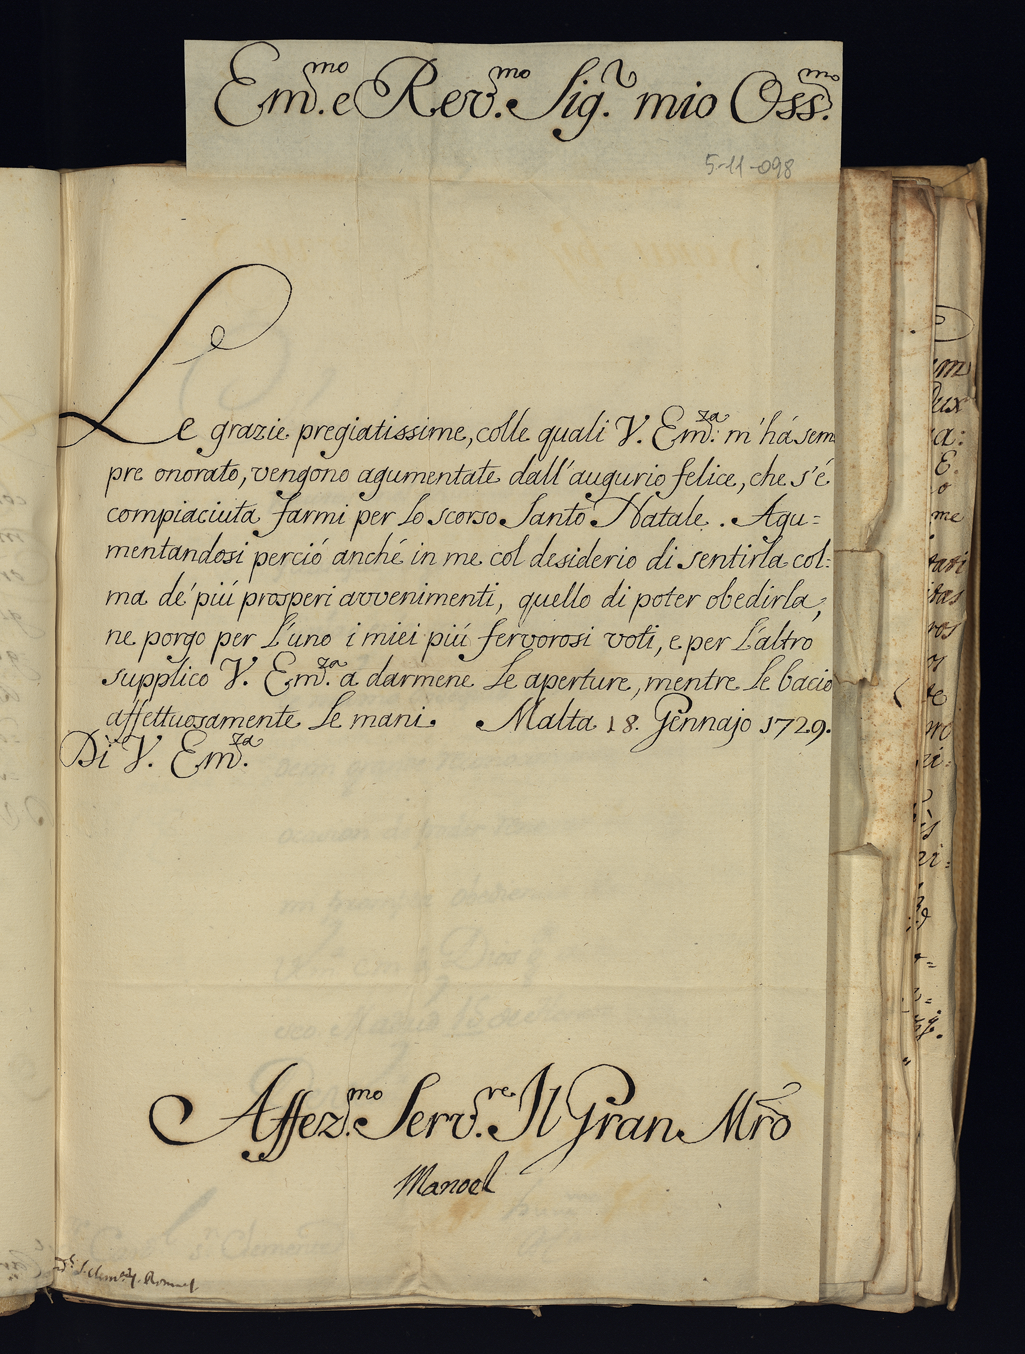 Em.mo e Rev.mo Sig.r mio Oss.mo
5-11-098
Le grazie pregiatissime, colle quali V. Em.za m'há sem
pre onorato, vengono agumentate dall'augurio felice, che s'é
compiaciuta farmi per lo scorso Santo Natale. Agu=
mentandosi perció anché in me col desiderio di sentirla col=
ma dé piú prosperi avvenimenti, quello di poter obedirla,
ne porgo per l'uno i miei piú fervorosi voti, e per l'altro
supplico V. Em.za a darmene le aperture, mentre le bacio
affettuosamente le mani. Malta 18. Gennajo 1729.
Di V. Em.za
Affez.mo Serv.re Il Gran Mro
Manoel